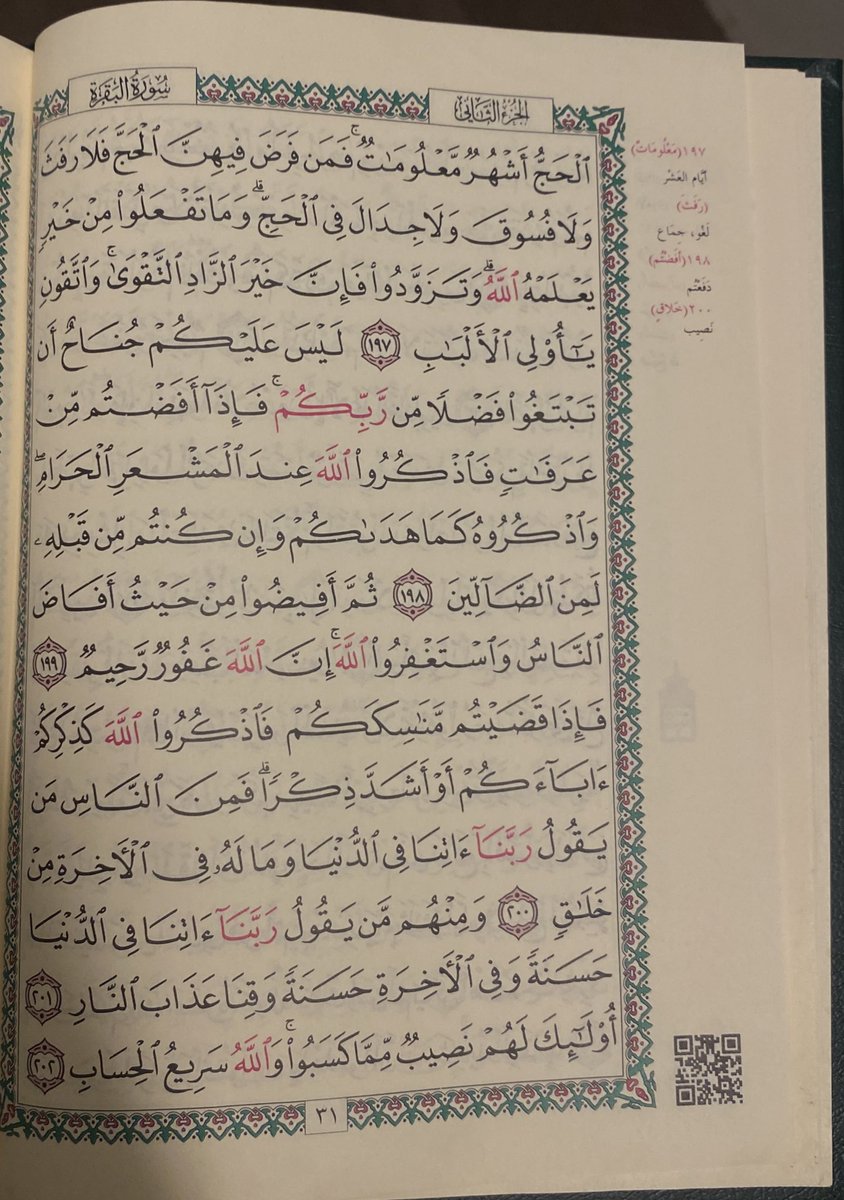 سُورَةُ البَقَرَةِ
الجُزءُ الثَّانِي
ٱلۡحَجُّ أَشۡهُرٞ مَّعۡلُومَٰتٞۚ فَمَن فَرَضَ فِيهِنَّ ٱلۡحَجَّ فَلَا رَفَثَ
وَلَا فُسُوقَ وَلَا جِدَالَ فِي ٱلۡحَجِّۗ وَمَا تَفۡعَلُواْ مِنۡ خَيۡرٖ
يَعۡلَمۡهُ ٱللَّهُۗ وَتَزَوَّدُواْ فَإِنَّ خَيۡرَ ٱلزَّادِ ٱلتَّقۡوَىٰۚ وَٱتَّقُونِ
يَٰٓأُوْلِي ٱلۡأَلۡبَٰبِ ١٩٧ لَيۡسَ عَلَيۡكُمۡ جُنَاحٌ أَن
تَبۡتَغُواْ فَضۡلٗا مِّن رَّبِّكُمۡۚ فَإِذَآ أَفَضۡتُم مِّنۡ
عَرَفَٰتٖ فَٱذۡكُرُواْ ٱللَّهَ عِندَ ٱلۡمَشۡعَرِ ٱلۡحَرَامِۖ
وَٱذۡكُرُوهُ كَمَا هَدَىٰكُمۡ وَإِن كُنتُم مِّن قَبۡلِهِۦ
لَمِنَ ٱلضَّآلِّينَ ١٩٨ ثُمَّ أَفِيضُواْ مِنۡ حَيۡثُ أَفَاضَ
ٱلنَّاسُ وَٱسۡتَغۡفِرُواْ ٱللَّهَۚ إِنَّ ٱللَّهَ غَفُورٞ رَّحِيمٞ ١٩٩
فَإِذَا قَضَيۡتُم مَّنَٰسِكَكُمۡ فَٱذۡكُرُواْ ٱللَّهَ كَذِكۡرِكُمۡ
ءَابَآءَكُمۡ أَوۡ أَشَدَّ ذِكۡرٗاۗ فَمِنَ ٱلنَّاسِ مَن
يَقُولُ رَبَّنَآ ءَاتِنَا فِي ٱلدُّنۡيَا وَمَا لَهُۥ فِي ٱلۡأٓخِرَةِ مِنۡ
خَلَٰقٖ ٢٠٠ وَمِنۡهُم مَّن يَقُولُ رَبَّنَآ ءَاتِنَا فِي ٱلدُّنۡيَا
حَسَنَةٗ وَفِي ٱلۡأٓخِرَةِ حَسَنَةٗ وَقِنَا عَذَابَ ٱلنَّارِ ٢٠١
أُوْلَٰٓئِكَ لَهُمۡ نَصِيبٞ مِّمَّا كَسَبُواْۚ وَٱللَّهُ سَرِيعُ ٱلۡحِسَابِ ٢٠٢
٣١
١٩٧(مَعْلُومَاتٌ)
أيَّام العَشْر
(رَفَثَ)
لَغْو، جِمَاع
١٩٨(أَفَضْتُم)
دَفَعْتُم
٢٠٠(خَلَاقٍ)
نَصِيب